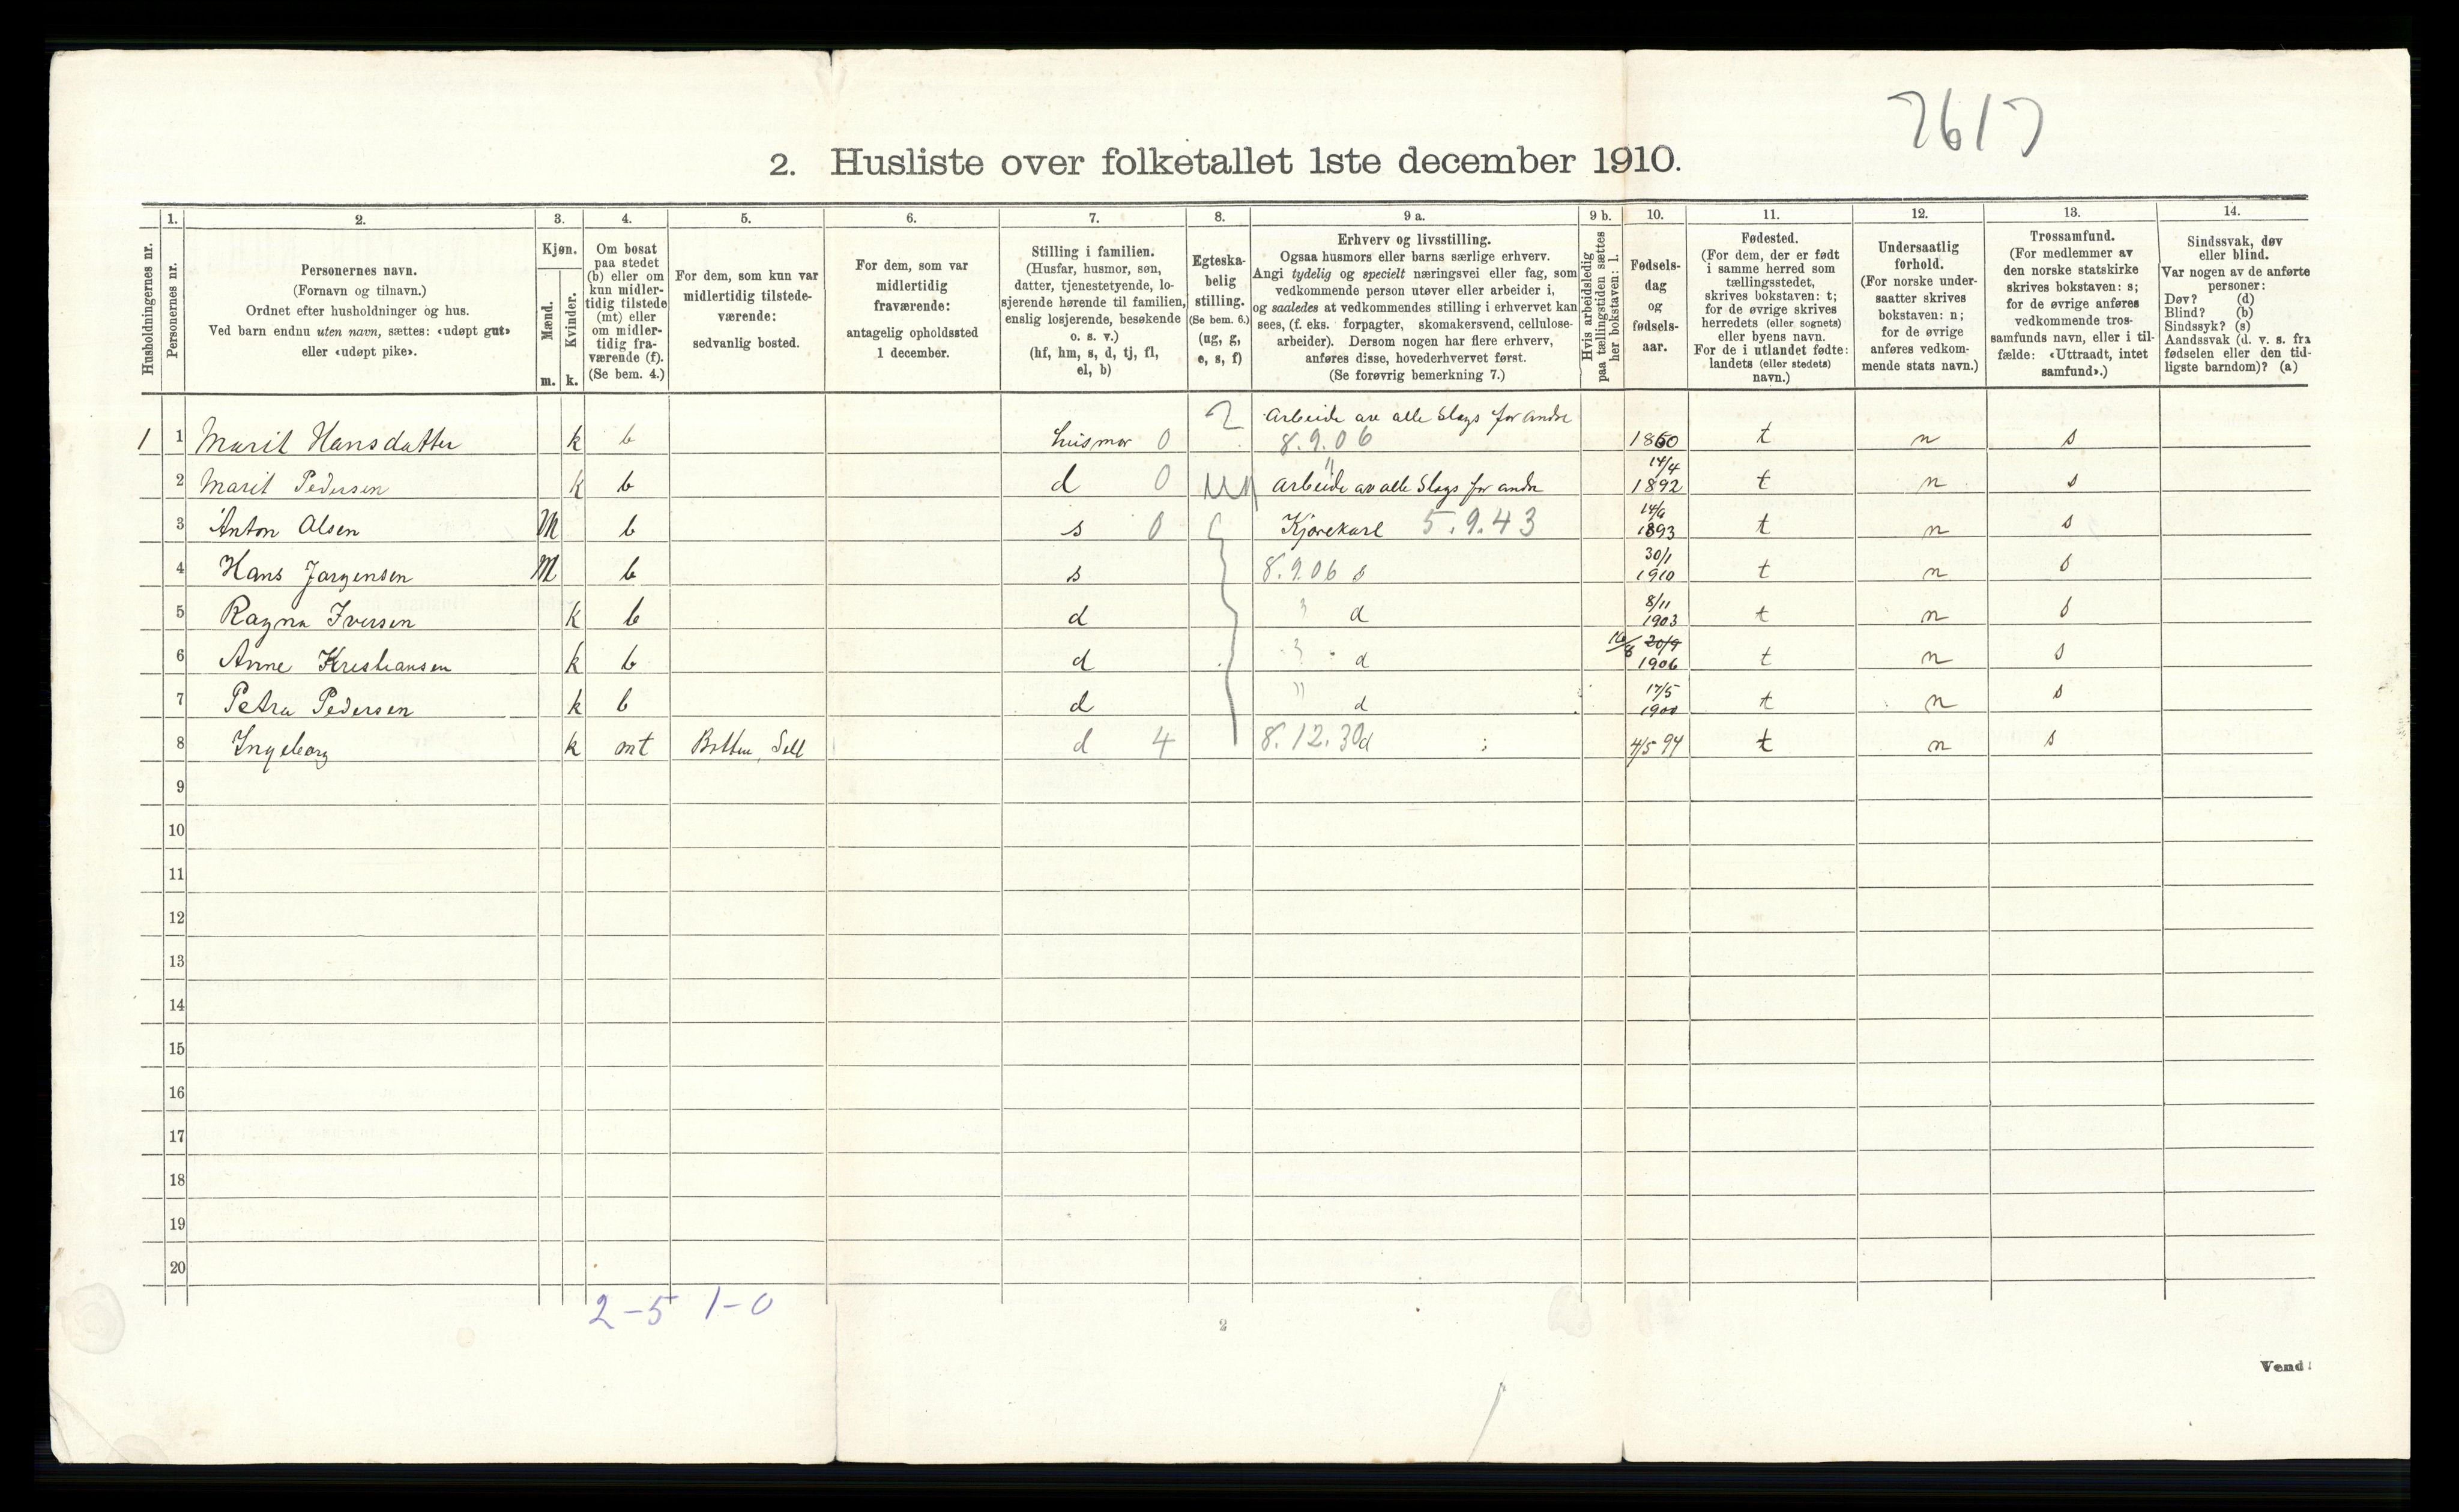 7617
2. Husliste over folketallet 1ste december 1910.
Husholdningernes nr.
1.
Personernes nr.
2.
Personernes navn.
(Fornavn og tilnavn.)
Ordnet efter husholdninger og hus.
Ved barn endnu uten navn, sættes: «udøpt gut»
eller «udøpt pike».
3.
Kjøn.
Mænd.
Kvinder.
m. k.
4.
Om bosat
paa stedet
(b) eller om
kun midler-
tidig tilstede
(mt) eller
om midler-
tidig fra-
værende (f).
(Se bem. 4.)
5.
For dem, som kun var
midlertidig tilstede-
værende:
sedvanlig bosted.
6.
For dem, som var
midlertidig
fraværende:
antagelig opholdssted
1 december.
7.
Stilling i familien.
(Husfar, husmor, søn,
datter, tjenestetyende, lo-
sjerende hørende til familien,
enslig losjerende, besøkende
o. s. v.)
(hf, hm, s, d, tj, fl,
el, b)
8.
Egteska-
belig
stilling.
(Se bem. 6.)
(ug, g,
e, s, f)
9 a.
Erhverv og livsstilling.
Ogsaa husmors eller barns særlige erhverv.
Angi tydelig og specielt næringsvei eller fag, som
vedkommende person utøver eller arbeider i,
og saaledes at vedkommendes stilling i erhvervet kan
sees, (f. eks. forpagter, skomakersvend, cellulose-
arbeider). Dersom nogen har flere erhverv,
anføres disse, hovederhvervet først.
(Se forøvrig bemerkning 7.)
9 b.
Hvis arbeidsledig
paa tællingstiden sættes
her bokstaven: l.
10.
Fødsels-
dag
og
fødsels-
aar.
11.
Fødested.
(For dem, der er født
i samme herred som
tællingsstedet,
skrives bokstaven: t;
for de øvrige skrives
herredets (eller sognets)
eller byens navn.
For de i utlandet fødte:
landets (eller stedets)
navn.)
12.
Undersaatlig
forhold.
(For norske under-
saatter skrives
bokstaven: n;
for de øvrige
anføres vedkom-
mende stats navn.)
13.
Trossamfund.
(For medlemmer av
den norske statskirke
skrives bokstaven: s;
for de øvrige anføres
vedkommende tros-
samfunds navn, eller i til-
fælde: «Uttraadt, intet
samfund».)
14.
Sindssvak, døv
eller blind.
Var nogen av de anførte
personer:
Døv? (d)
Blind? (b)
Sindssyk? (s)
Aandssvak (d. v. s. fra
fødselen eller den tid-
ligste barndom)? (a)
Arbeide av alle Slags for andre
1 1 Marit Hansdatter k b husmor 0 2 8.9.06 1860 t n s
2 Marit Pedersen k b d 0 " Arbeide av alle Slags for andre 14/4 1892 t n s
3 Anton Olsen M b s 0 Kjørekarl 5.9.43 1893 t n s
4 Hans Jørgensen M b s 8.9.06 s 30/1 1910 t n s
5 Ragna Iversen k b d d 8/11 1903 t n s
6 Anne Kristiansen k b d d 16/8 20/9 1906 t n s
7 Petra Pedersen k b d " d 17/5 1900 t n s
8 Ingeborg k mt Botten, Sell d 4 8.12.30 d 4/5 94 t n s
9
10
11
12
13
14
15
16
17
18
19
20
2-5 1-0
2
Vend!